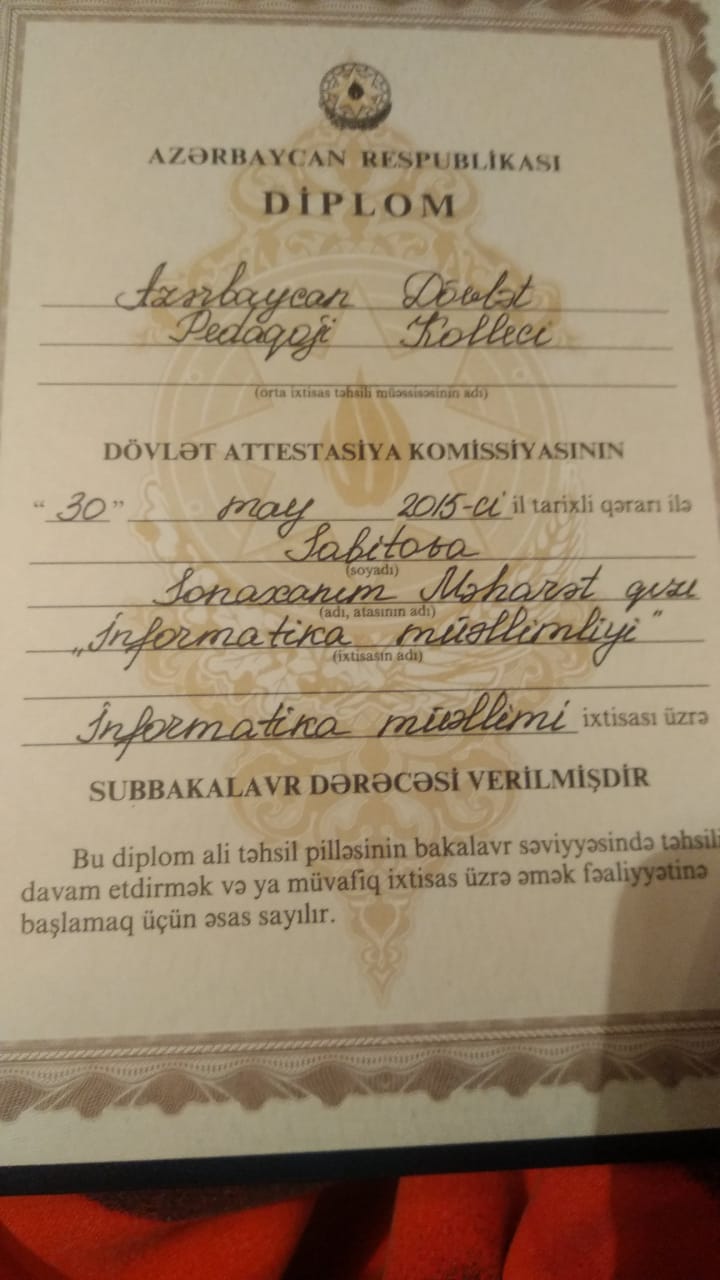 AZƏRBAYCAN RESPUBLİKASI
DİPLOM
Azərbaycan Dövlət
Pedaqoji Kolleci
(orta ixtisas təhsili müəssisəsinin adı)
DÖVLƏT ATTESTASİYA KOMİSSİYASININ
“30” may 2015-ci il tarixli qərarı ilə
Sabitova
(soyadı)
Sonaxanım Məharət qızı
(adı, atasının adı)
„İnformatika müəllimliyi”
(ixtisasın adı)
İnformatika müəllimi ixtisası üzrə
SUBBAKALAVR DƏRƏCƏSİ VERİLMİŞDİR
Bu diplom ali təhsil pilləsinin bakalavr səviyyəsində təhsili
davam etdirmək və ya müvafiq ixtisas üzrə əmək fəaliyyətinə
başlamaq üçün əsas sayılır.